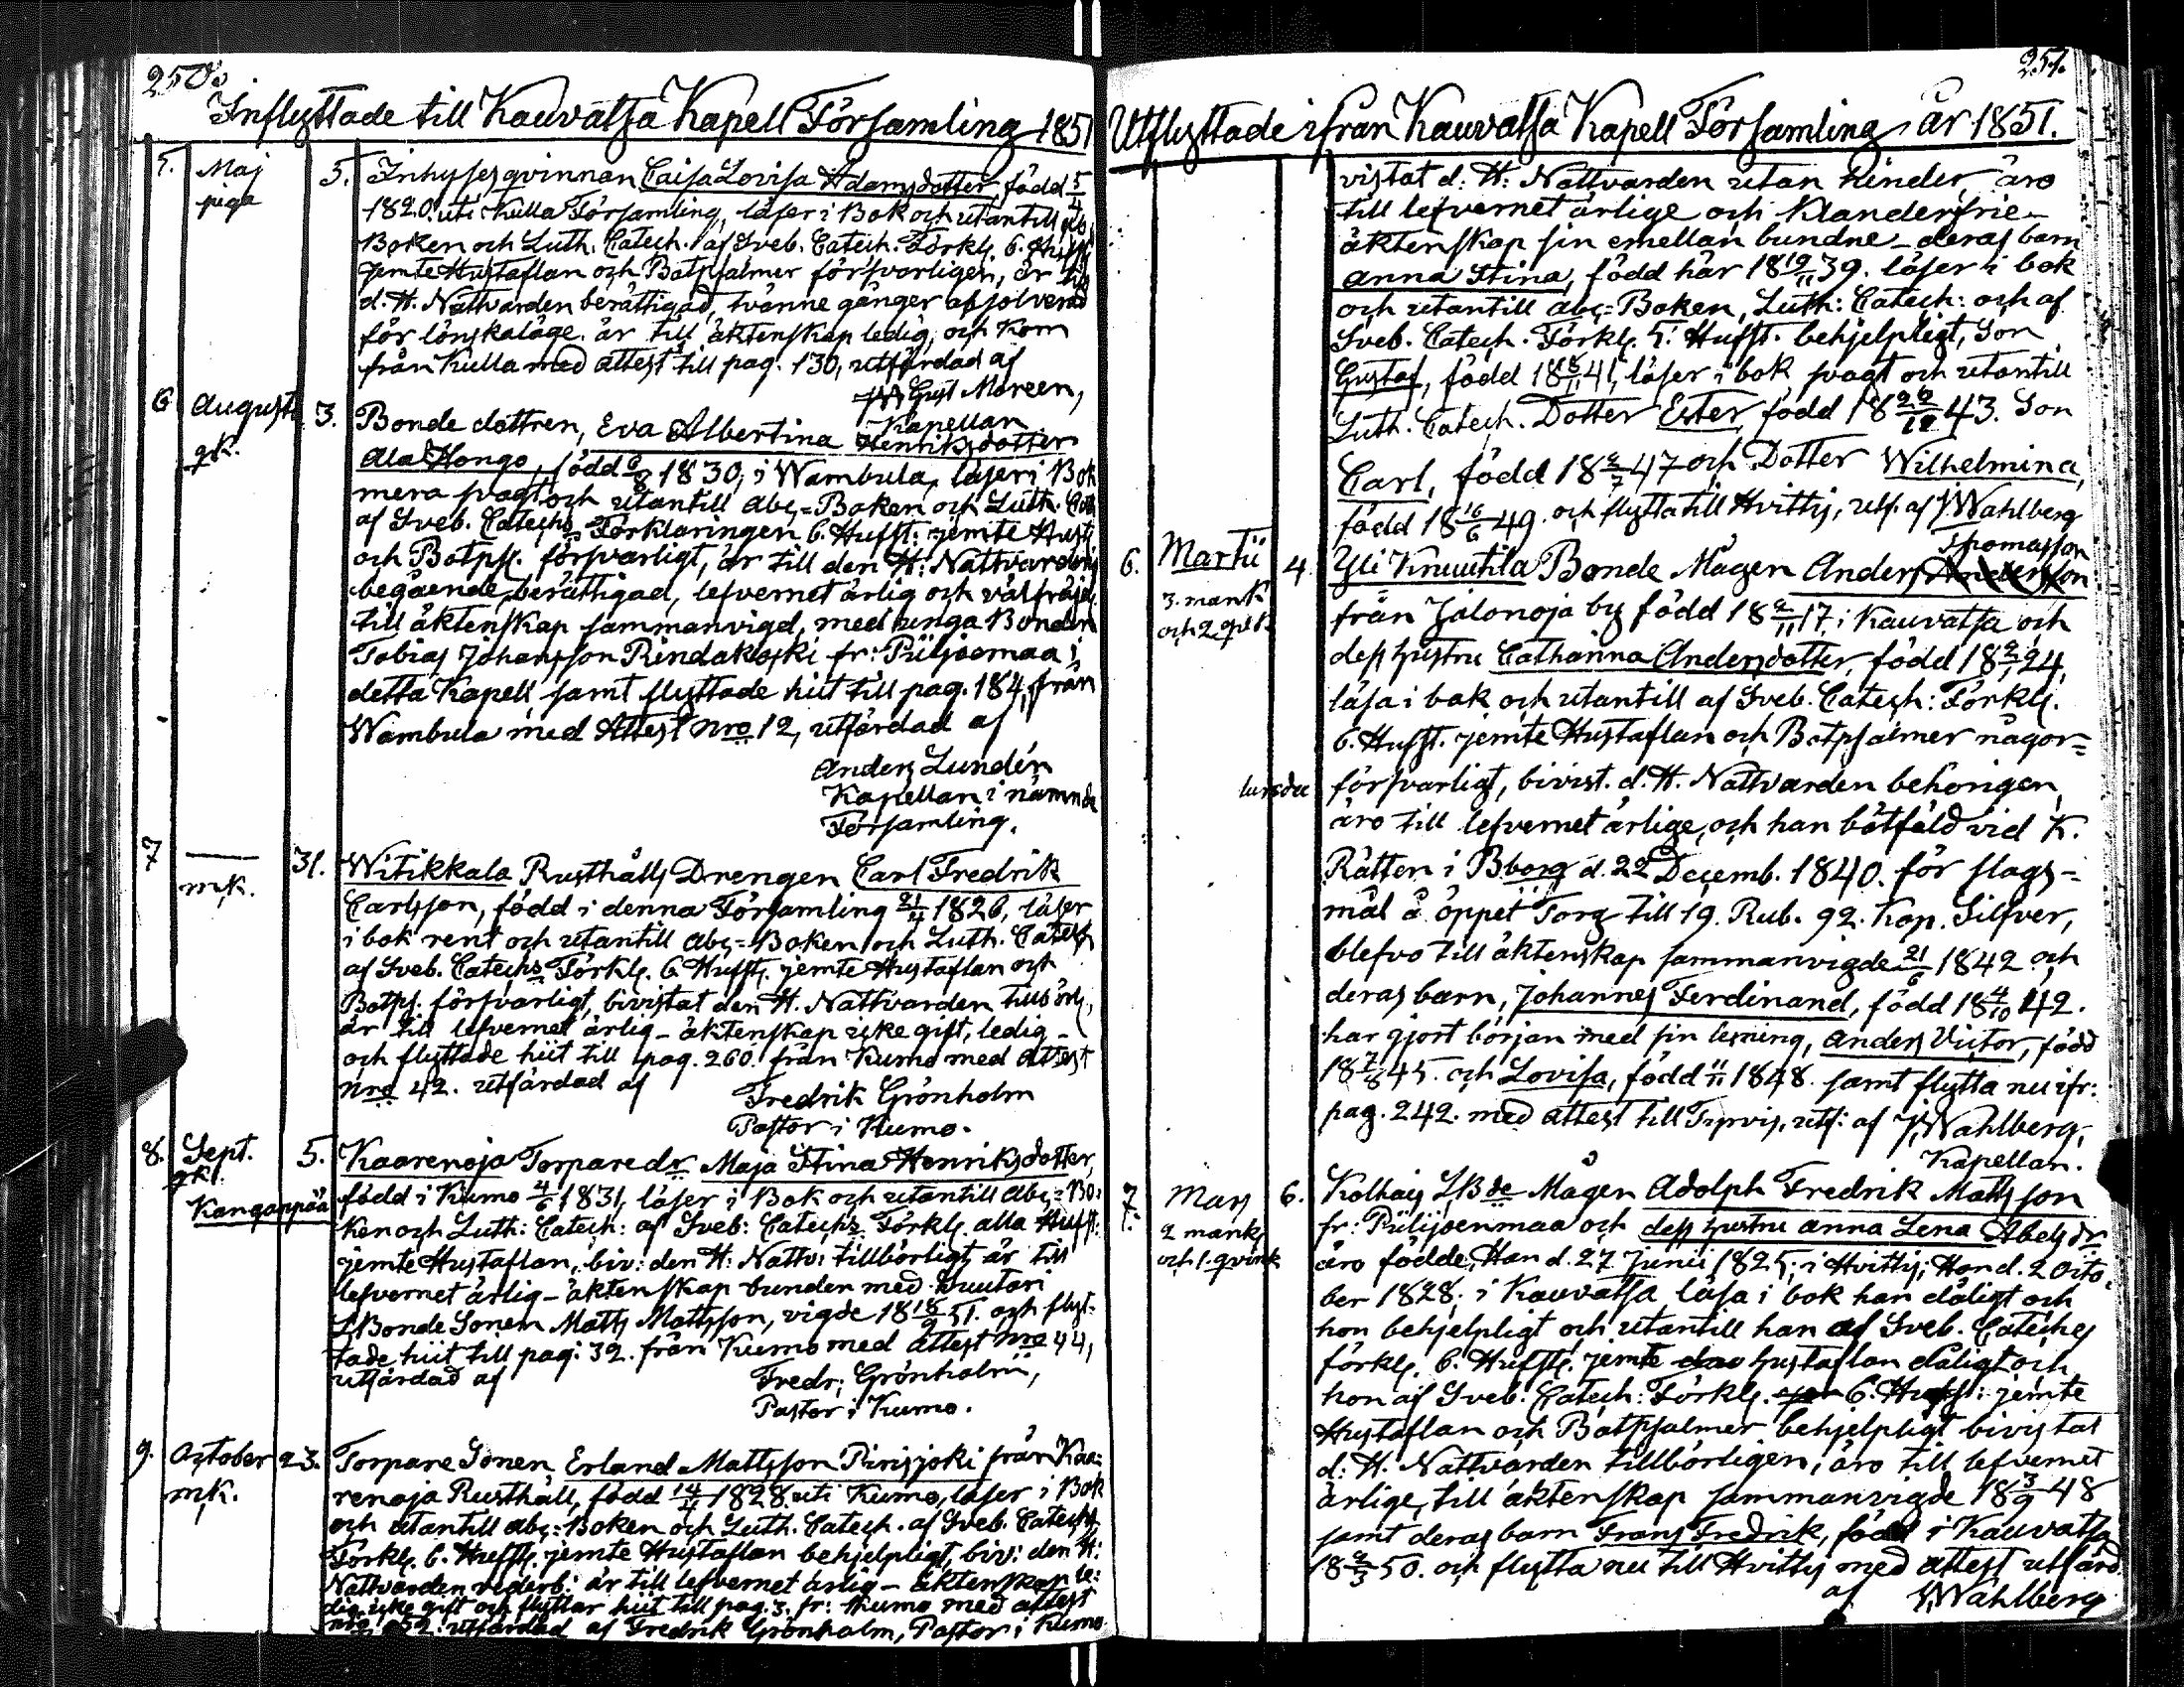 250.
Inflyttade till Kauvatsa Kapell Församling 1851
5. Maj 5. Inhysesqvinnan Caisa Lovisa Adamsdotter född 5/4
piga 1820. uti Kulla Församling, läser i Bok och utantill abc
Boken och Luth. Catech. af Sveb. Catech. Förkl. 6. Hufst
jemte Hustaflan och Botpsalmer försvarligen, är till
d. H. Nattvarden berättigad, tvänne gånger absolverad
för lönskaläge. är till äktenskap ledig, och kom
från Kulla med attest till pag. 130, utfärdad af
Gust Moreen,
Kapellan
6 Augusti 3. Bonde dottren, Eva Albertina Henriksdotter
qk. Ala Hongo, född 6/8 1830, i Wambula, läser i Bok
mera svagt och utantill abc=Boken och Luth. Cat
af Sveb. Catechs Förklaringen 6. Hufst: jemte Hust
och Botps. försvarligt, är till den H: Nattvardens
begående berättigad, lefvernet ärlig och välfräjd
till äktenskap sammanvigd, med unga Bonden
Tobias Johansson Rindakoski fr: Piiljoemaa i
detta Kapell, samt flyttade hiit till pag. 184, från
Wambula med Attest Nro 12, utfärdad af
Anders Lundén
Kapellan i nämnde
Församling.
7 — 31. Witikkala Rusthålls Drengen Carl Fredrik
mk. Carlsson, född i denna Församling 21/4 1826, läser
i bok rent och utantill abc=Boken och Luth. Catech
af Sveb. Catechs Förkl. 6. Hufst. jemte Hustaflan och
Botps. försvarligt, bivistat den H. Nattvarden tillbörl,
är till lefvernet ärlig – äktenskap icke gift, ledig –
och flyttade hiit till pag. 260. från Kumo med Attest
Nro 42. utfärdad af
Fredrik Grönholm
Pastor i Kumo.
8. Sept. 5. Kaarenoja Torparedr Maja Stina Henriksdotter,
qk. född i Kumo 4/6 1831, läser i Bok och utantill abc=Bo:
Kanganpää ken och Luth: Catech: af Sveb: Catechs Förkl. alla Hufst:
jemte Hustaflan, biv: den H: Nattv: tillbörligt, är till
lefvernet ärlig – äktenskap bunden med Suutari
LBonde Sonen Matts Mattsson, vigde 18 18/9 51. och flyt-
tade hiit till pag: 32. från Kumo med attest Nro 44,
utfärdad af
Fredr: Grönholm,
Pastor i Kumo.
9. October 23. Torpare Sonen Erland Mattsson Pirisjoki från Kaa-
mk. renoja Rusthåll, född 14/4 1828. uti Kumo, läser i Bok
och utantill abc=Boken och Luth. Catech. af Sveb. Catechs
Förkl. 6. Hufst. jemte Hustaflan behjelpligt, biv: den H:
Nattvarden vederb: är till lefvernet ärlig – äktenskap le:
dig, icke gift och flyttar hiit till pag. 3. fr: Kumo med attest
Nro 52. utfärdad af Fredrik Grönholm, Pastor i Kumo.
251.
Utflyttade ifrån Kauvatsa Kapell Församling, år 1851.
vistat d: H: Nattvarden utan hinder, äro
till lefvernet ärlige och klanderfrie –
äktenskap sin emellan bundne – deras barn
Anna Stina, född här 18 19/11 39. läser i bok
och utantill abc=Boken, Luth: Catech: och af
Sveb. Catech. Förkl. 5. Hufst. behjelpligt, Son
Gustaf, född 18 18/11 41, läser i bok svagt och utantill
Luth. Catech. Dotter Ester född 18 26/12 43. Son
Carl, född 18 2/7 47 och Dotter Wilhelmina,
född 18 16/6 49. och flytta till Hvittis, utf. af J. Wahlberg
Thomasson
6. Martii 4. Yli Knuutila Bonde Mågen Anders Andersson
3. mank från Jalonoja by född 18 2/11 17, i Kauvatsa och
och 2. qk. dess hustru Catharina Andersdotter, född 18 2/2 24,
läsa i bok och utantill af Sveb. Catech: Förkl.
6. Hufst. jemte Hustaflan och Botpsalmer någor=
lunda försvarligt, bivist. d. H. Nattvarden behörigen,
äro till lefvernet ärlige, och han bötfäld vid K.
Rätten i Bborg d. 22 Decemb. 1840. för slags-
mål å öppet Torg till 19. Rub. 92. Kop. Silfver,
blefvo till äktenskap sammanvigde 21/6 1842 och
deras barn, Johannes Ferdinand, född 18 4/10 42.
har gjort början med sin lesning, Anders Victor, född
18 7/8 45. och Lovisa, född 11/11 1848. samt flytta nu ifr:
pag. 242. med attest till Tyrvis, utf: af J. Wahlberg,
Kapellan.
7. Mars 6. Kolhais LBde Mågen Adolph Fredrik Mattsson
2 mank. fr: Piilijoenmaa och dess hustru Anna Lena Abelsdr
och 1. qvink äro födde, Han d. 27 Junii 1825, i Hvittis; Hon d. 2 Octo-
ber 1828, i Kauvatsa läsa i bok han dåligt och
hon behjelpligt och utantill han af Sveb. Cateches
förkl. 6. Hufst. jemte hustaflan dåligt och
hon af Sveb. Catech: Förkl. 6. Hufst: jemte
Hustaflan och Botpsalmer behjelpligt bivistat
d: H. Nattvarden tillbörligen, äro till lefvernet
ärlige, till äktenskap sammanvigde 18 3/9 48
samt deras barn Frans Fredrik, född i Kauvatsa
18 2/3 50. och flytta nu till Hvittis med attest utfärd.
af J. Wahlberg